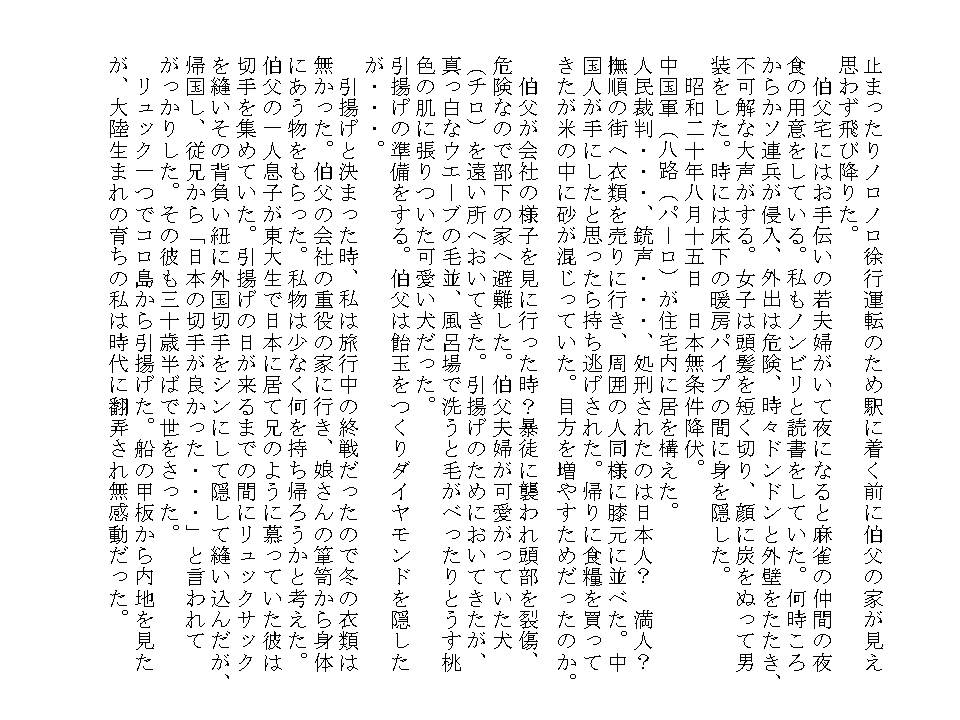 止まったりノロノロ徐行運転のため駅に着く前に伯父の家が見え
思わず飛び降りた。
　伯父宅にはお手伝いの若夫婦がいて夜になると麻雀の仲間の夜
食の用意をしている。私もノンビリと読書をしていた。何時ころ
からかソ連兵が侵入、外出は危険、時々ドンドンと外壁をたたき、
不可解な大声がする。女子は頭髪を短く切り、顔に炭をぬって男
装をした。時には床下の暖房パイプの間に身を隠した。
　昭和二十年八月十五日　日本無条件降伏。
中国軍（八路（パーロ）が住宅内に居を構えた。
人民裁判・・・、銃声・・・、処刑されたのは日本人？　満人？
撫順の街へ衣類を売りに行き、周囲の人同様に膝元に並べた。中
国人が手にしたと思ったら持ち逃げされた。帰りに食糧を買って
きたが米の中に砂が混じっていた。目方を増やすためだったのか。
　伯父が会社の様子を見に行った時？暴徒に襲われ頭部を裂傷、
危険なので部下の家へ避難した。伯父夫婦が可愛がっていた犬
（チロ）を遠い所へおいてきた。引揚げのためにおいてきたが、
真っ白なウエーブの毛並、風呂場で洗うと毛がべったりとうす桃
色の肌に張りついた可愛い犬だった。
引揚げの準備をする。伯父は飴玉をつくりダイヤモンドを隠した
が・・・。
　引揚げと決まった時、私は旅行中の終戦だったので冬の衣類は
無かった。伯父の会社の重役の家に行き、娘さんの箪笥から身体
にあう物をもらった。私物は少なく何を持ち帰ろうかと考えた。
伯父の一人息子が東大生で日本に居て兄のように慕っていた彼は
切手を集めていた。引揚げの日が来るまでの間にリュックサック
を縫いその背負い紐に外国切手をシンにして隠して縫い込んだが、
帰国し、従兄から「日本の切手が良かった・・・」と言われて
がっかりした。その彼も三十歳半ばで世をさった。
　リュック一つでコロ島から引揚げた。船の甲板から内地を見た
が、大陸生まれの育ちの私は時代に翻弄され無感動だった。